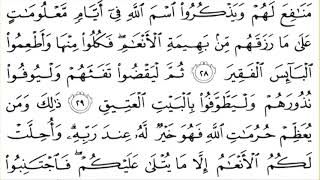 مَنَٰفِعَ لَهُمْ وَيَذْكُرُوا۟ ٱسْمَ ٱللَّهِ فِىٓ أَيَّامٍ مَّعْلُومَٰتٍ
عَلَىٰ مَا رَزَقَهُم مِّنۢ بَهِيمَةِ ٱلْأَنْعَٰمِ ۖ فَكُلُوا۟ مِنْهَا وَأَطْعِمُوا۟
ٱلْبَآئِسَ ٱلْفَقِيرَ ٢٨ ثُمَّ لْيَقْضُوا۟ تَفَثَهُمْ وَلْيُوفُوا۟
نُذُورَهُمْ وَلْيَطَّوَّفُوا۟ بِٱلْبَيْتِ ٱلْعَتِيقِ ٢٩ ذَٰلِكَ وَمَن
يُعَظِّمْ حُرُمَٰتِ ٱللَّهِ فَهُوَ خَيْرٌ لَّهُۥ عِندَ رَبِّهِۦ ۗ وَأُحِلَّتْ
لَكُمُ ٱلْأَنْعَٰمُ إِلَّا مَا يُتْلَىٰ عَلَيْكُمْ ۖ فَٱجْتَنِبُوا۟